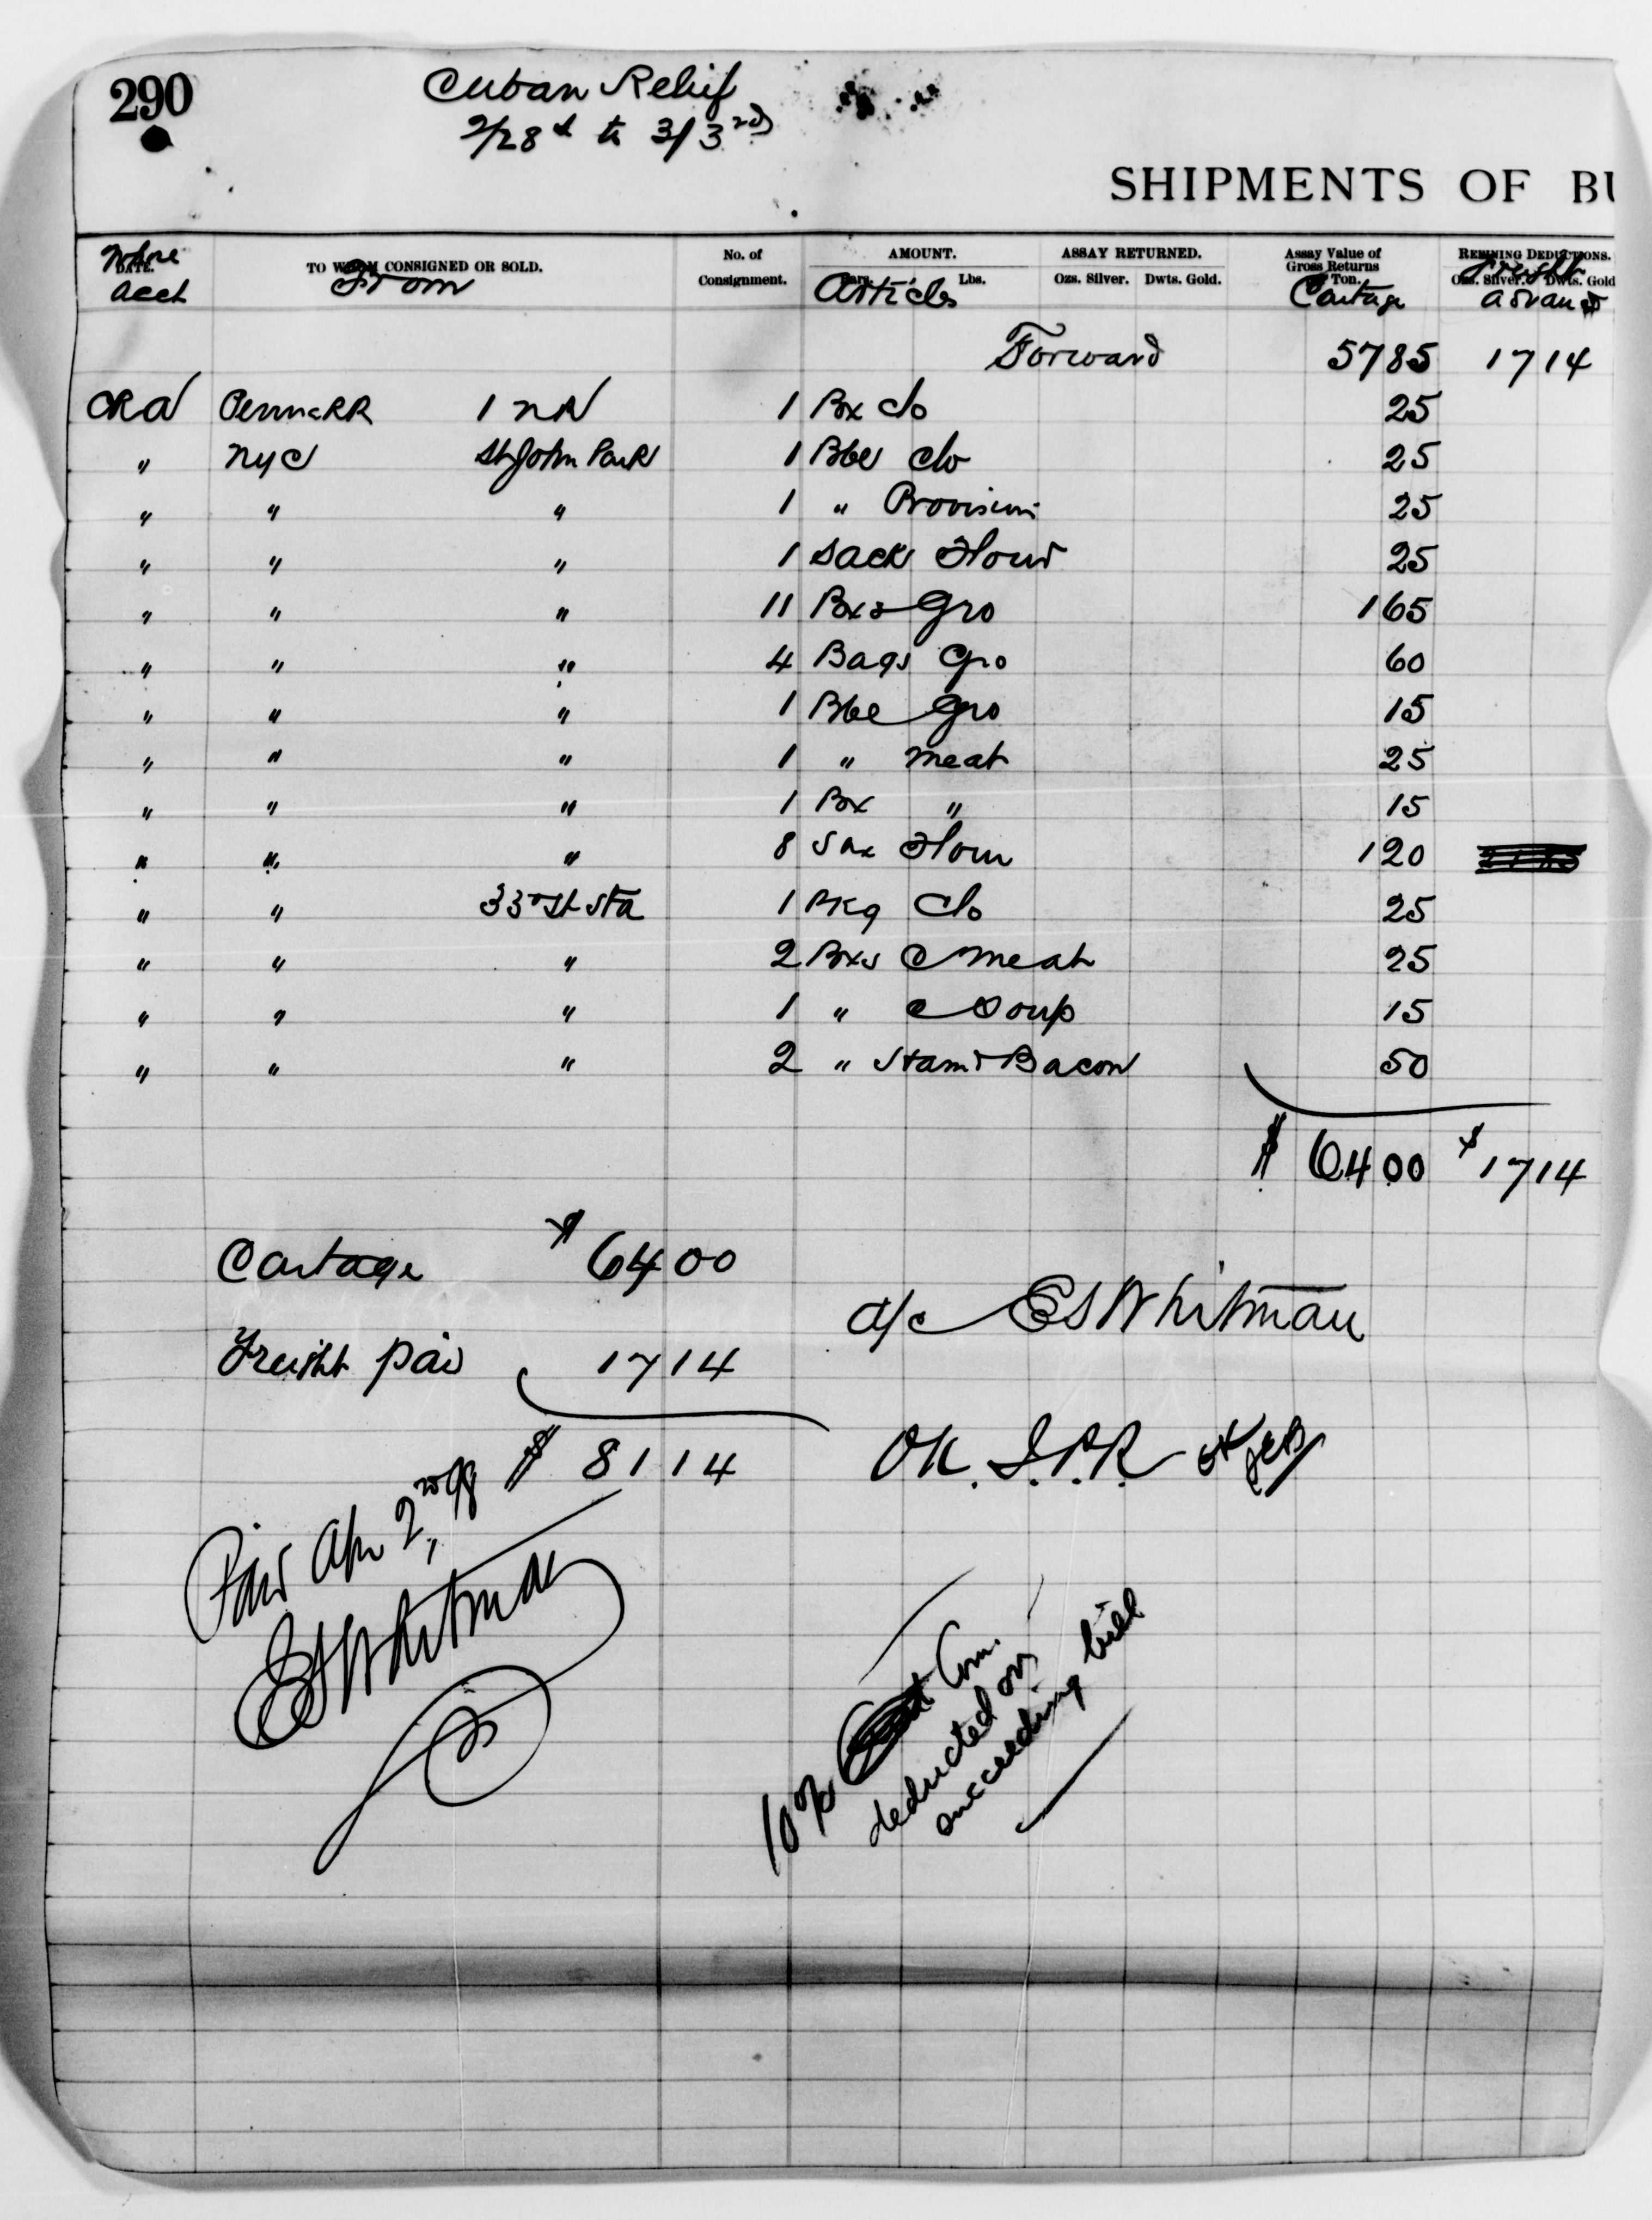 290
Cuban Relief
2/28th to 3/3rd
SHIPMENTS OF BU
Whose Acct DATE. TO WHOM CONSIGNED OR SOLD. From No. of Consignment. AMOUNT. Bars. Lbs. Articles ASSAY RETURNED. Ozs. Silver. Dwts. Gold. Assay Value of Gross Returns Ton. Cartage REFINING DEDUCTIONS. Ozs. Silver. Dwts. Gold Freight Advan
Forward 5785 1714
CRA PennaRR 1 NR 1 Box Clo 25
" NYC St John Park 1 Bbl Clo 25
" " " 1 " Provisions 25
" " " 1 Sack Flour 25
" " " 11 Bxs Gro 165
" " " 4 Bags Gro 60
" " " 1 Bbl Gro 15
" " " 1 " Meat 25
" " " 1 Box " 15
" " " 8 Sax Flour 120
" " 33rd St Sta 1 Pkg Clo 25
" " " 2 Bxs C Meat 25
" " " 1 " C Soup 15
" " " 2 " Ham & Bacon 50
$ 6400 $ 1714
Cartage $ 6400
a/c ESWhitman
Freight paid 1714
$ 8114 OK. S.P.R. OK
Paid Apr 2, 98
ESWhitman
10% Com.
deducted on
succeeding bill